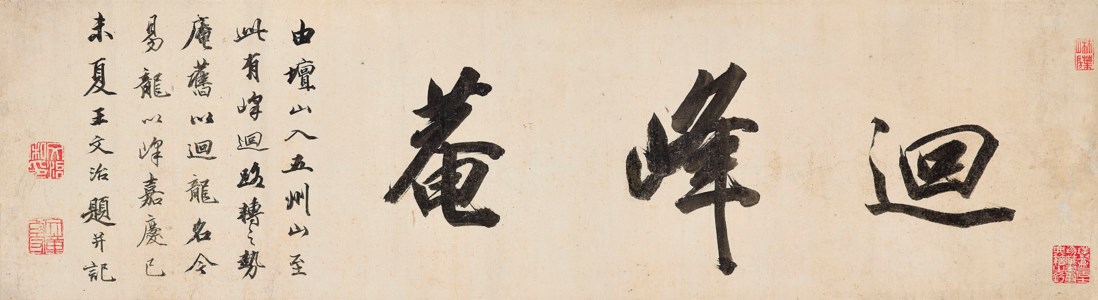 迴峰菴
由壇山入五州山至
此有峰迴路轉之勢
庵舊以迴龍名今
易龍以峰嘉慶己
未夏王文治題并記